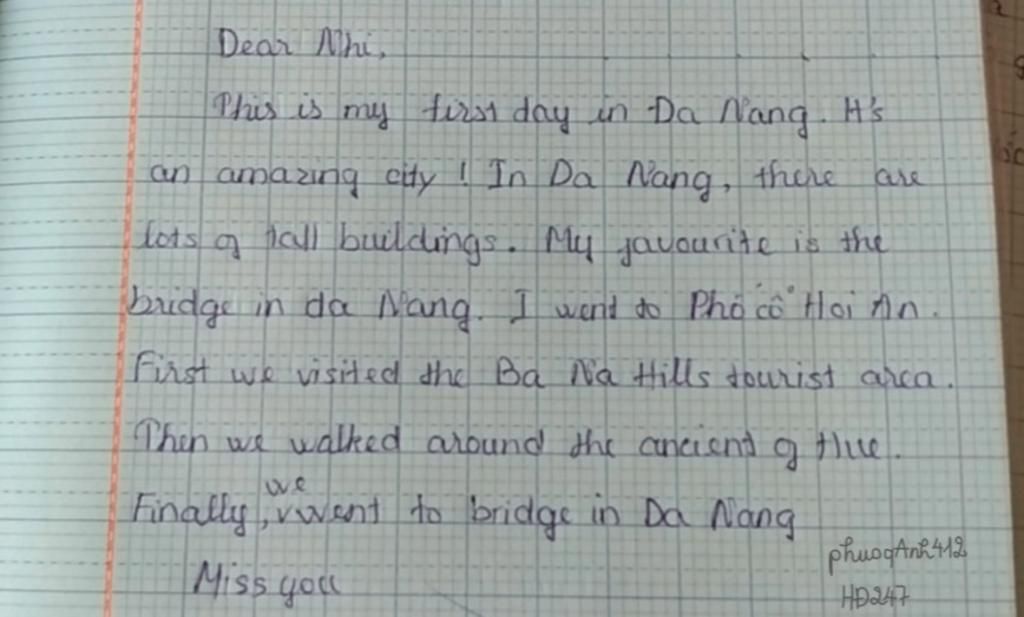 Dear Nhi,
This is my first day in Da Nang. It's
an amazing city! In Da Nang, there are
lots of tall buildings. My favourite is the
bridge in da Nang. I went to Phố cổ Hoi An.
First we visited the Ba Na Hills tourist area.
Then we walked around the ancient of Hue.
Finally, we went to bridge in Da Nang
Miss you
phuoqAnh412
HD247